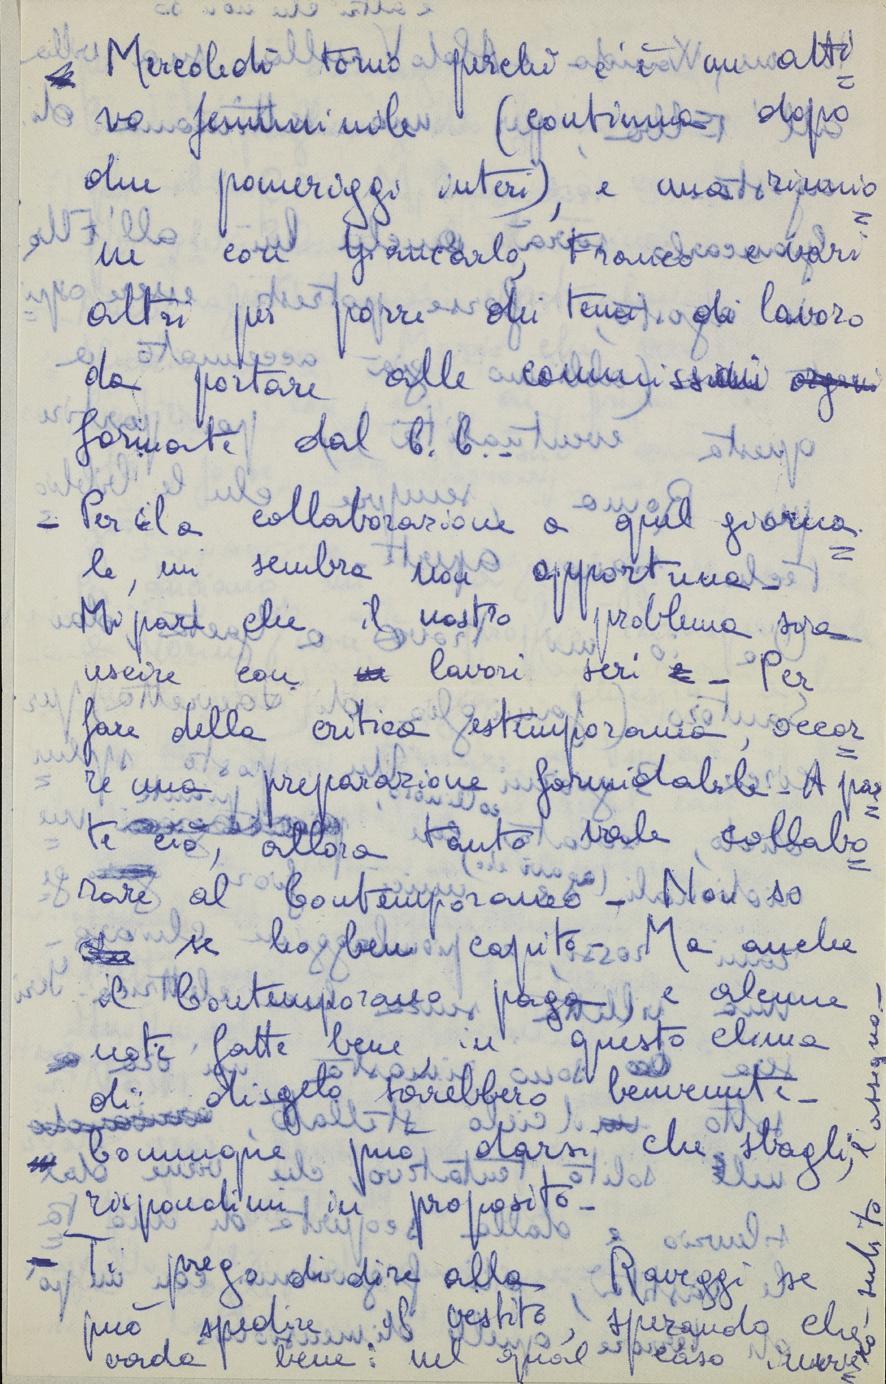 Mercoledì torno perché c'è un atti=
vo femminile (continua dopo
due pomeriggi interi), e una riunio=
ne con Giancarlo, Franco e vari
altri per porre dei temi di lavoro
da portare alle commissioni
formate dal C.C.-
- Per la collaborazione a quel giorna=
le, mi sembra non opportuna-
Mi pare che il nostro problema sia
uscire con lavori seri - Per
fare della critica estemporanea, occor=
re una preparazione formidabile - A par=
te ciò, allora tanto vale collabo=
rare al Contemporaneo - Non so
se ho ben capito - Ma anche
il Contemporaneo paga e alcune
note fatte bene in questo clima
di disgelo sarebbero benvenute -
Comunque può darsi che sbagli,
rispondimi in proposito -
- Ti prego di dire alla Raveggi se
può spedire il vestito, sperando che
vada bene: nel qual caso invie=
rò subito l'assegno -